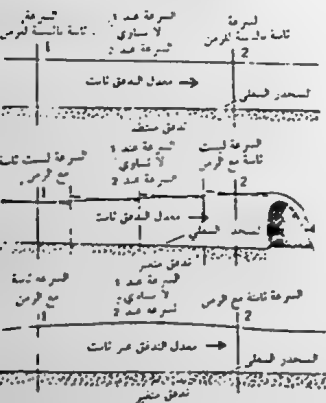 السرعة
ثابتة بالنسبة للزمن
السرعة عند 1
لا يساوي
السرعة عند 2
السرعة
ثابتة بالنسبة للزمن
1
2
معدل التدفق ثابت →
المنحدر السفلي
تدفق
السرعة ليست ثابتة
مع الزمن
السرعة عند 1
لا تساوي
السرعة عند 2
السرعة ليست
ثابتة مع الزمن
1
2
معدل التدفق ثابت →
المنحدر السفلي
تدفق متغير
السرعة ثابتة
مع الزمن
السرعة عند 1
لا تساوي
السرعة عند 2
السرعة ثابتة مع الزمن
1
2
معدل التدفق غير ثابت →
المنحدر السفلي
تدفق متغير